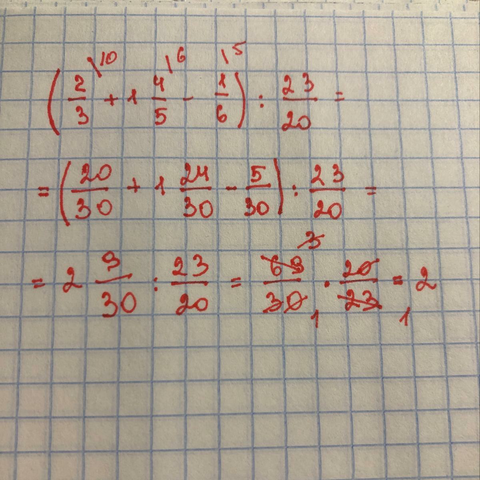 (2/3 \10 + 1 4/5 \6 - 1/6 \5) : 23/20 =
= (20/30 + 1 24/30 - 5/30) : 23/20 =
= 2 9/30 : 23/20 = 69/30 · 20/23 = 2
3
1 1